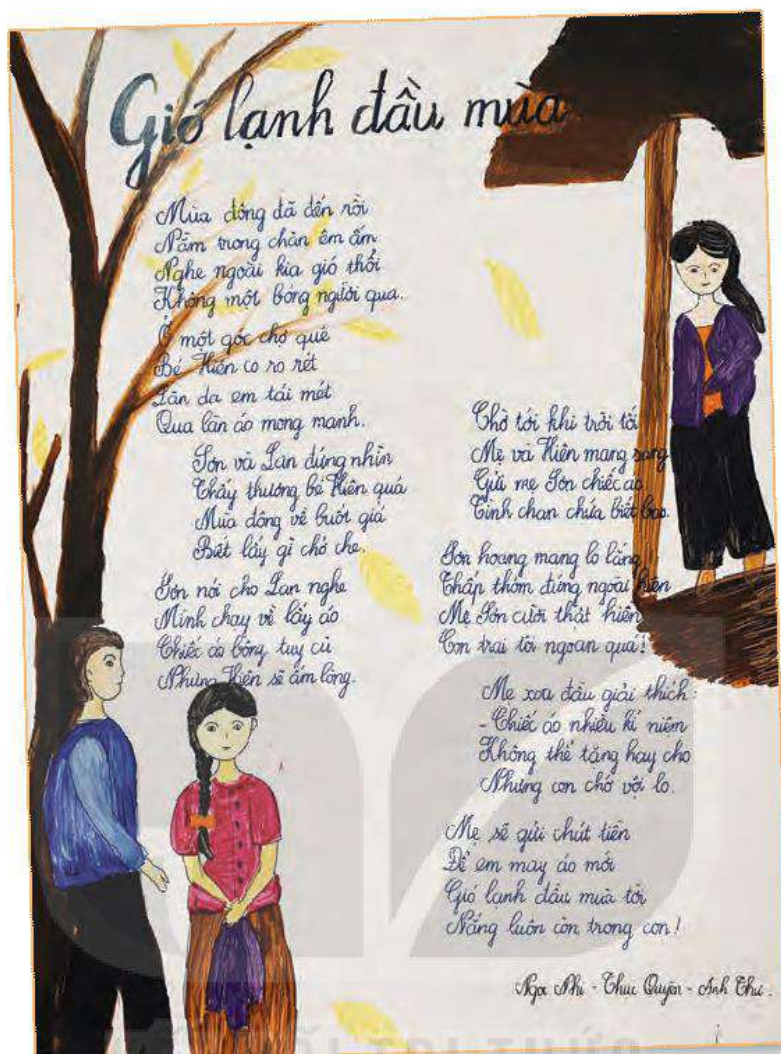 Gió lạnh đầu mùa
Mùa đông đã đến rồi
Nằm trong chăn êm ấm
Nghe ngoài kia gió thổi
Không một bóng người qua.
Ở một góc chợ quê
Bé Hiên co ro rét
Làn da em tái mét
Qua làn áo mong manh.
Sơn và Lan đứng nhìn
Thấy thương bé Hiên quá
Mùa đông về buốt giá
Biết lấy gì chở che.
Sơn nói cho Lan nghe
Mình chạy về lấy áo
Chiếc áo bông tuy cũ
Nhưng Hiên sẽ ấm lòng.
Chờ tới khi trời tối
Mẹ và Hiên mang sang
Gửi mẹ Sơn chiếc áo
Tình chan chứa biết bao.
Sơn hoang mang lo lắng
Thấp thỏm đứng ngoài hiên
Mẹ Sơn cười thật hiền
Con trai tôi ngoan quá!
Mẹ xoa đầu giải thích:
- Chiếc áo nhiều kỉ niệm
Không thể tặng hay cho
Nhưng con chớ vội lo.
Mẹ sẽ gửi chút tiền
Để em may áo mới
Gió lạnh đầu mùa tới
Nắng luôn còn trong con!
Ngọc Nhi - Thục Quyên - Anh Thư.